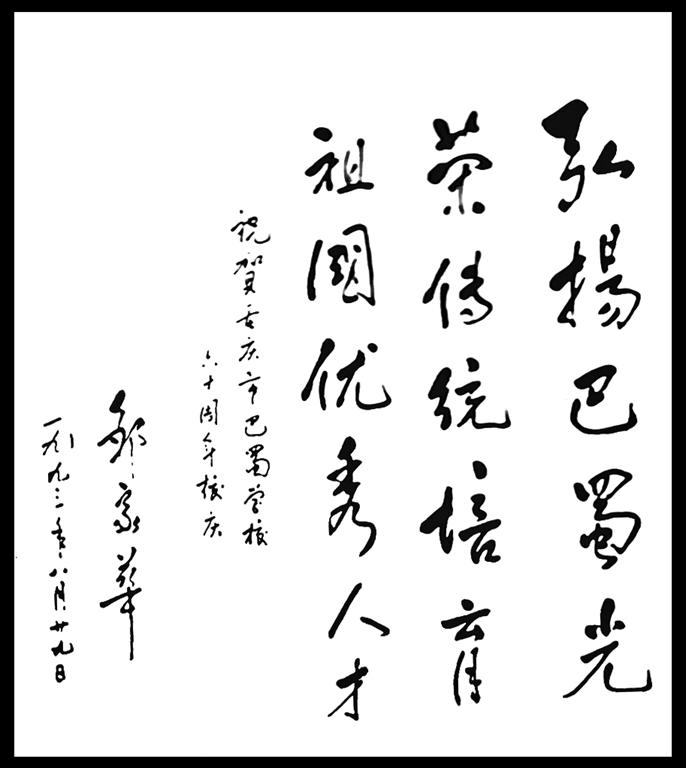 弘揚巴蜀光
荣传統培育
祖國优秀人才
祝賀重庆市巴蜀学校
六十周年校庆
邹家華
一九九三年八月廿九日